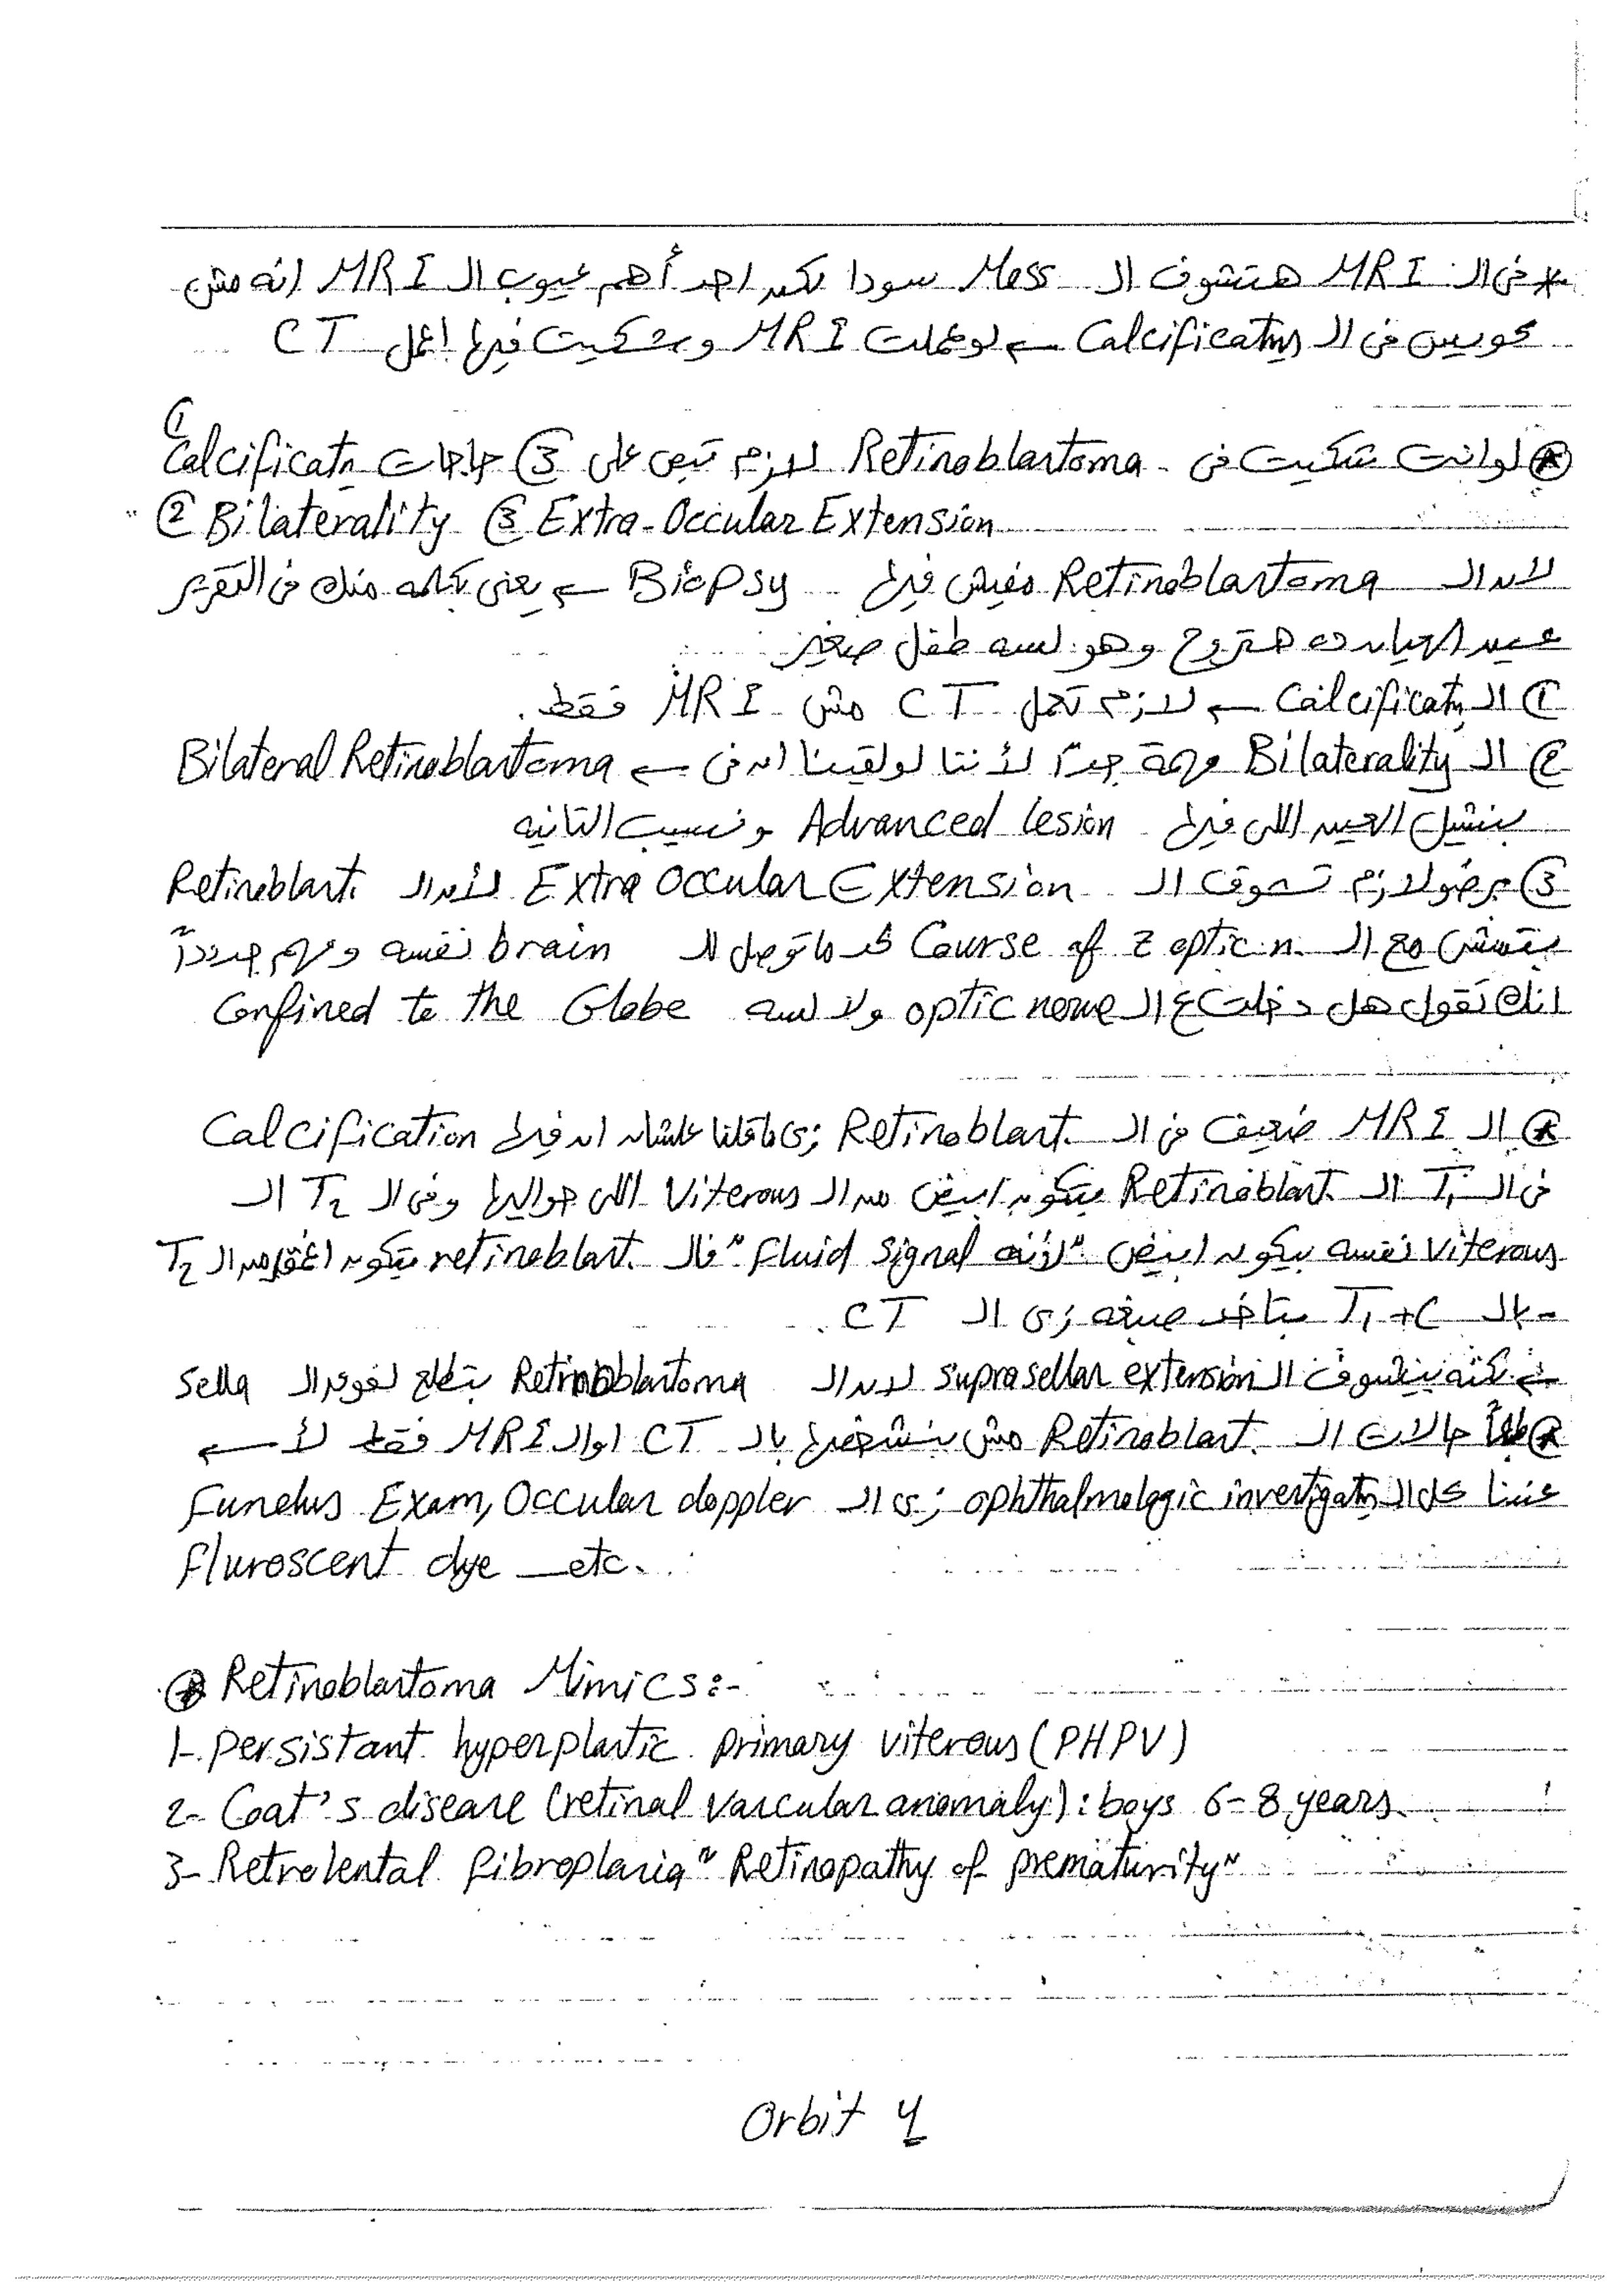 * فى الـ MRI هتشوف الـ Mass سودا لكن احد أهم عيوب الـ MRI انه مش
كويس فى الـ Calcification ← لو عملت MRI وشكيت فيها اعمل CT
لو انت شكيت فى Retinoblastoma لازم تبص على 3 حاجات ① Calcificatn
② Bilaterality ③ Extra-Occular Extension
لان الـ Retinoblastoma مفيش فيها Biopsy ← يعنى كلمه منك فى التقرير
عين العيان ده هتروح وهو لسه طفل صغير
① الـ Calcificatn ← لازم تعمل CT مش MRI فقط.
② الـ Bilaterality مهمة جداً لأننا لو لقينا ان فى ← Bilateral Retinoblastoma
بنشيل العين اللى فيها Advanced lesion ونسيب التانيه
③ برضو لازم تشوف الـ Extra Occular Extension لأن الـ Retinoblart.
بتمشى مع الـ Course of z optic n. لحد ما توصل للـ brain نفسه ومهم جدداً
انك تقول هل دخلت ع الـ optic nerve ولا لسه Confined to the Globe
الـ MRI ضعيف فى الـ Retinoblart. زى ما قلنا علشان ان فيها Calcification
فى الـ T1 الـ Retinoblart. بتكون ابيض من الـ Viterous اللى حواليها وفى الـ T2 الـ
Viterous نفسه بيكون ابيض "لأنه Fluid signal" فالـ retinoblart. بتكون اغمق من الـ T2
- بالـ T1+C بتاخد صبغه زى الـ CT.
بنشوف الـ suprasellar extension لان الـ Retinoblastoma بتطلع لفوق الـ Sella
حالات الـ Retinoblart. مش بنشخصها بالـ CT او الـ MRI فقط لأ ←
عندنا كل الـ ophthalmologic investigatn زى الـ Fundus Exam, Occular doppler
Fluroscent dye __etc.
Retinoblastoma Mimics:-
1- Persistant hyperplastic primary viterous (PHPV)
2- Coat's disease (retinal vascular anomaly): boys 6-8 years.
3- Retrolental fibroplasia "Retinopathy of prematurity"
Orbit 4